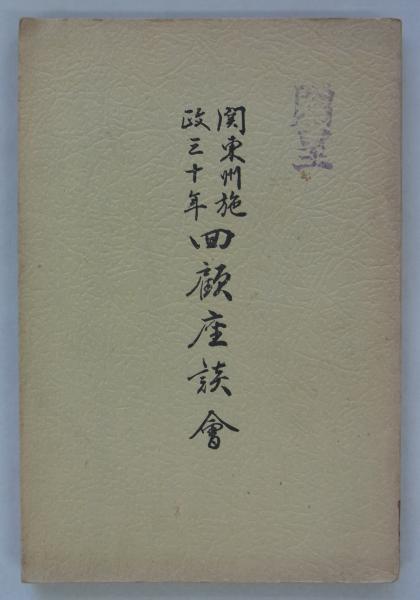 関東州施
政三十年
回顧座談會
贈呈